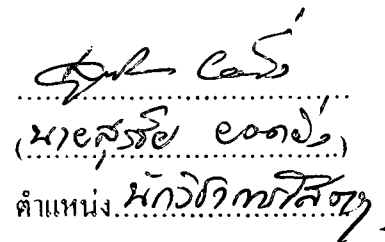 (นายสุรชัย ยอดยิ่ง)
ตำแหน่ง นักวิชาการโสตฯ